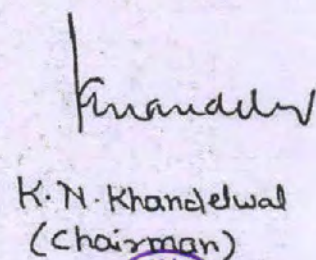 Khandelwal
K.N. Khandelwal
(Chairman)